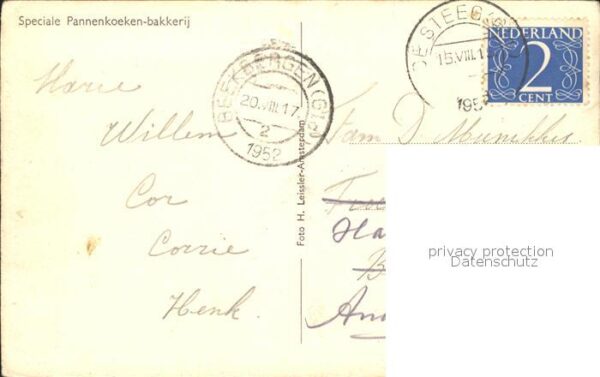 Speciale Pannenkoeken-bakkerij
Marie
Willem
Cor
Corrie
Henk.
Foto H. Leissler-Amsterdam
BEEKBERGEN (GLD)
20.VIII.17
2
1952
DE STEEG (GLD)
15.VIII.1
1952
NEDERLAND
2
CENT
Fam D.
privacy protection
Datenschutz